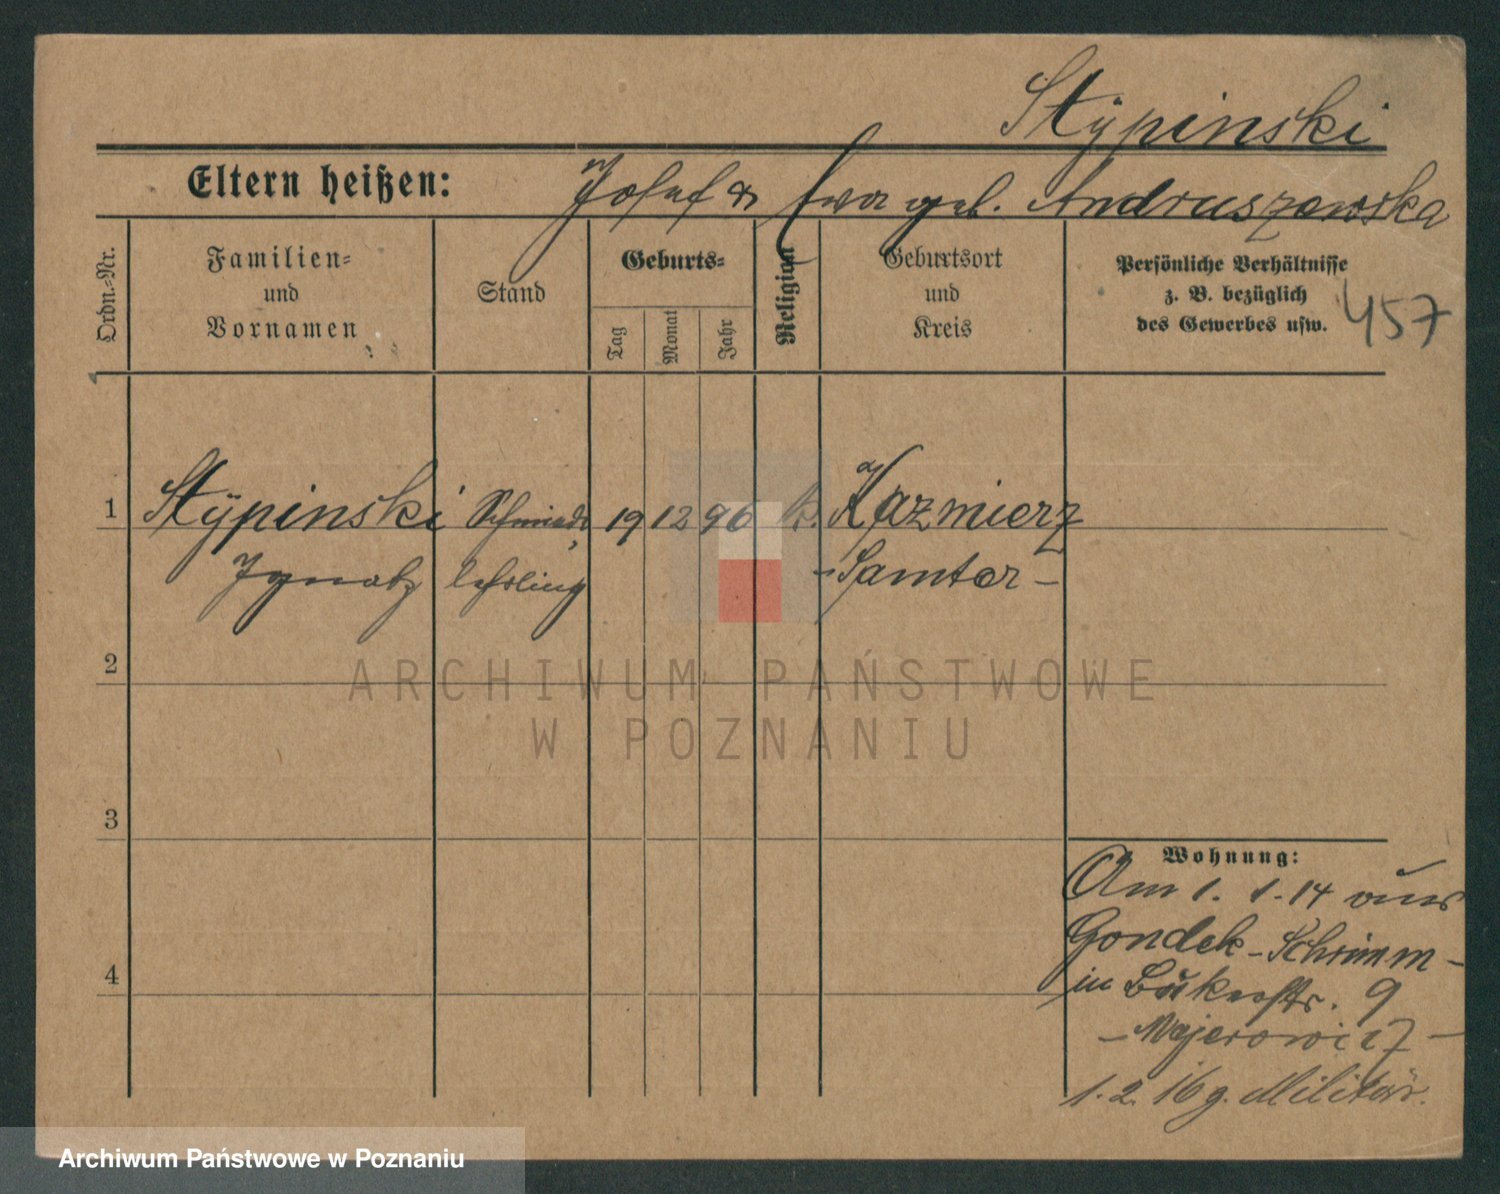 Stÿpinski
Eltern heißen: Josef & Ewa geb. Andruszewska
Ordn.-Nr.
Familien-
und
Vornamen
Stand
Geburts-
Tag
Monat
Jahr
Religion
Geburtsort
und
Kreis
Persönliche Verhältnisse
z. B. bezüglich
des Gewerbes usw.
457
1 Stÿpinski Schmiede 19 12 96 k. Kazmierz
Ignatz lehrling - Samter -
2
3
4
Wohnung:
Am 1. 1. 14 aus
Gondek - Schrimm -
in Bäckerstr. 9
- Majerowicz -
1. 2. 16 z. Militär.
ARCHIWUM PAŃSTWOWE
W POZNANIU
Archiwum Państwowe w Poznaniu